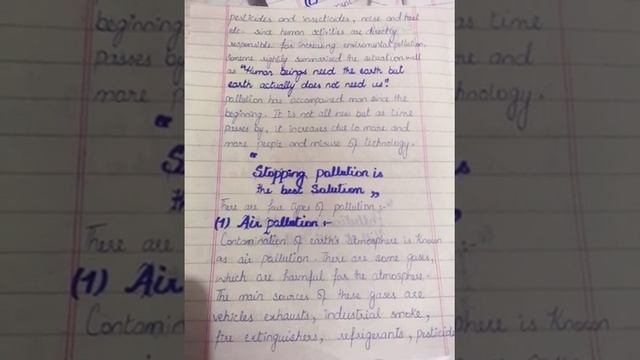 pesticides and insecticides, noise and heat
etc. since human activities are directly
responsible for increasing enviromental pollution.
Someone rightly summarized the situation well
as "Human beings need the earth but
earth actually does not need us".
pollution has accompanied man since the
beginning. It is not all new but as time
passes by, it increases due to more and
more people and misuse of technology.
"Stopping pollution is
the best Solution"
There are four types of pollution :-
(1) Air pollution :-
Contamination of earth's atmosphere is known
as air pollution. There are some gases,
which are harmful for the atmosphere.
The main sources of these gases are
vehicles exhausts, industrial smoke,
fire extinguishers, refrigerants, pesticide